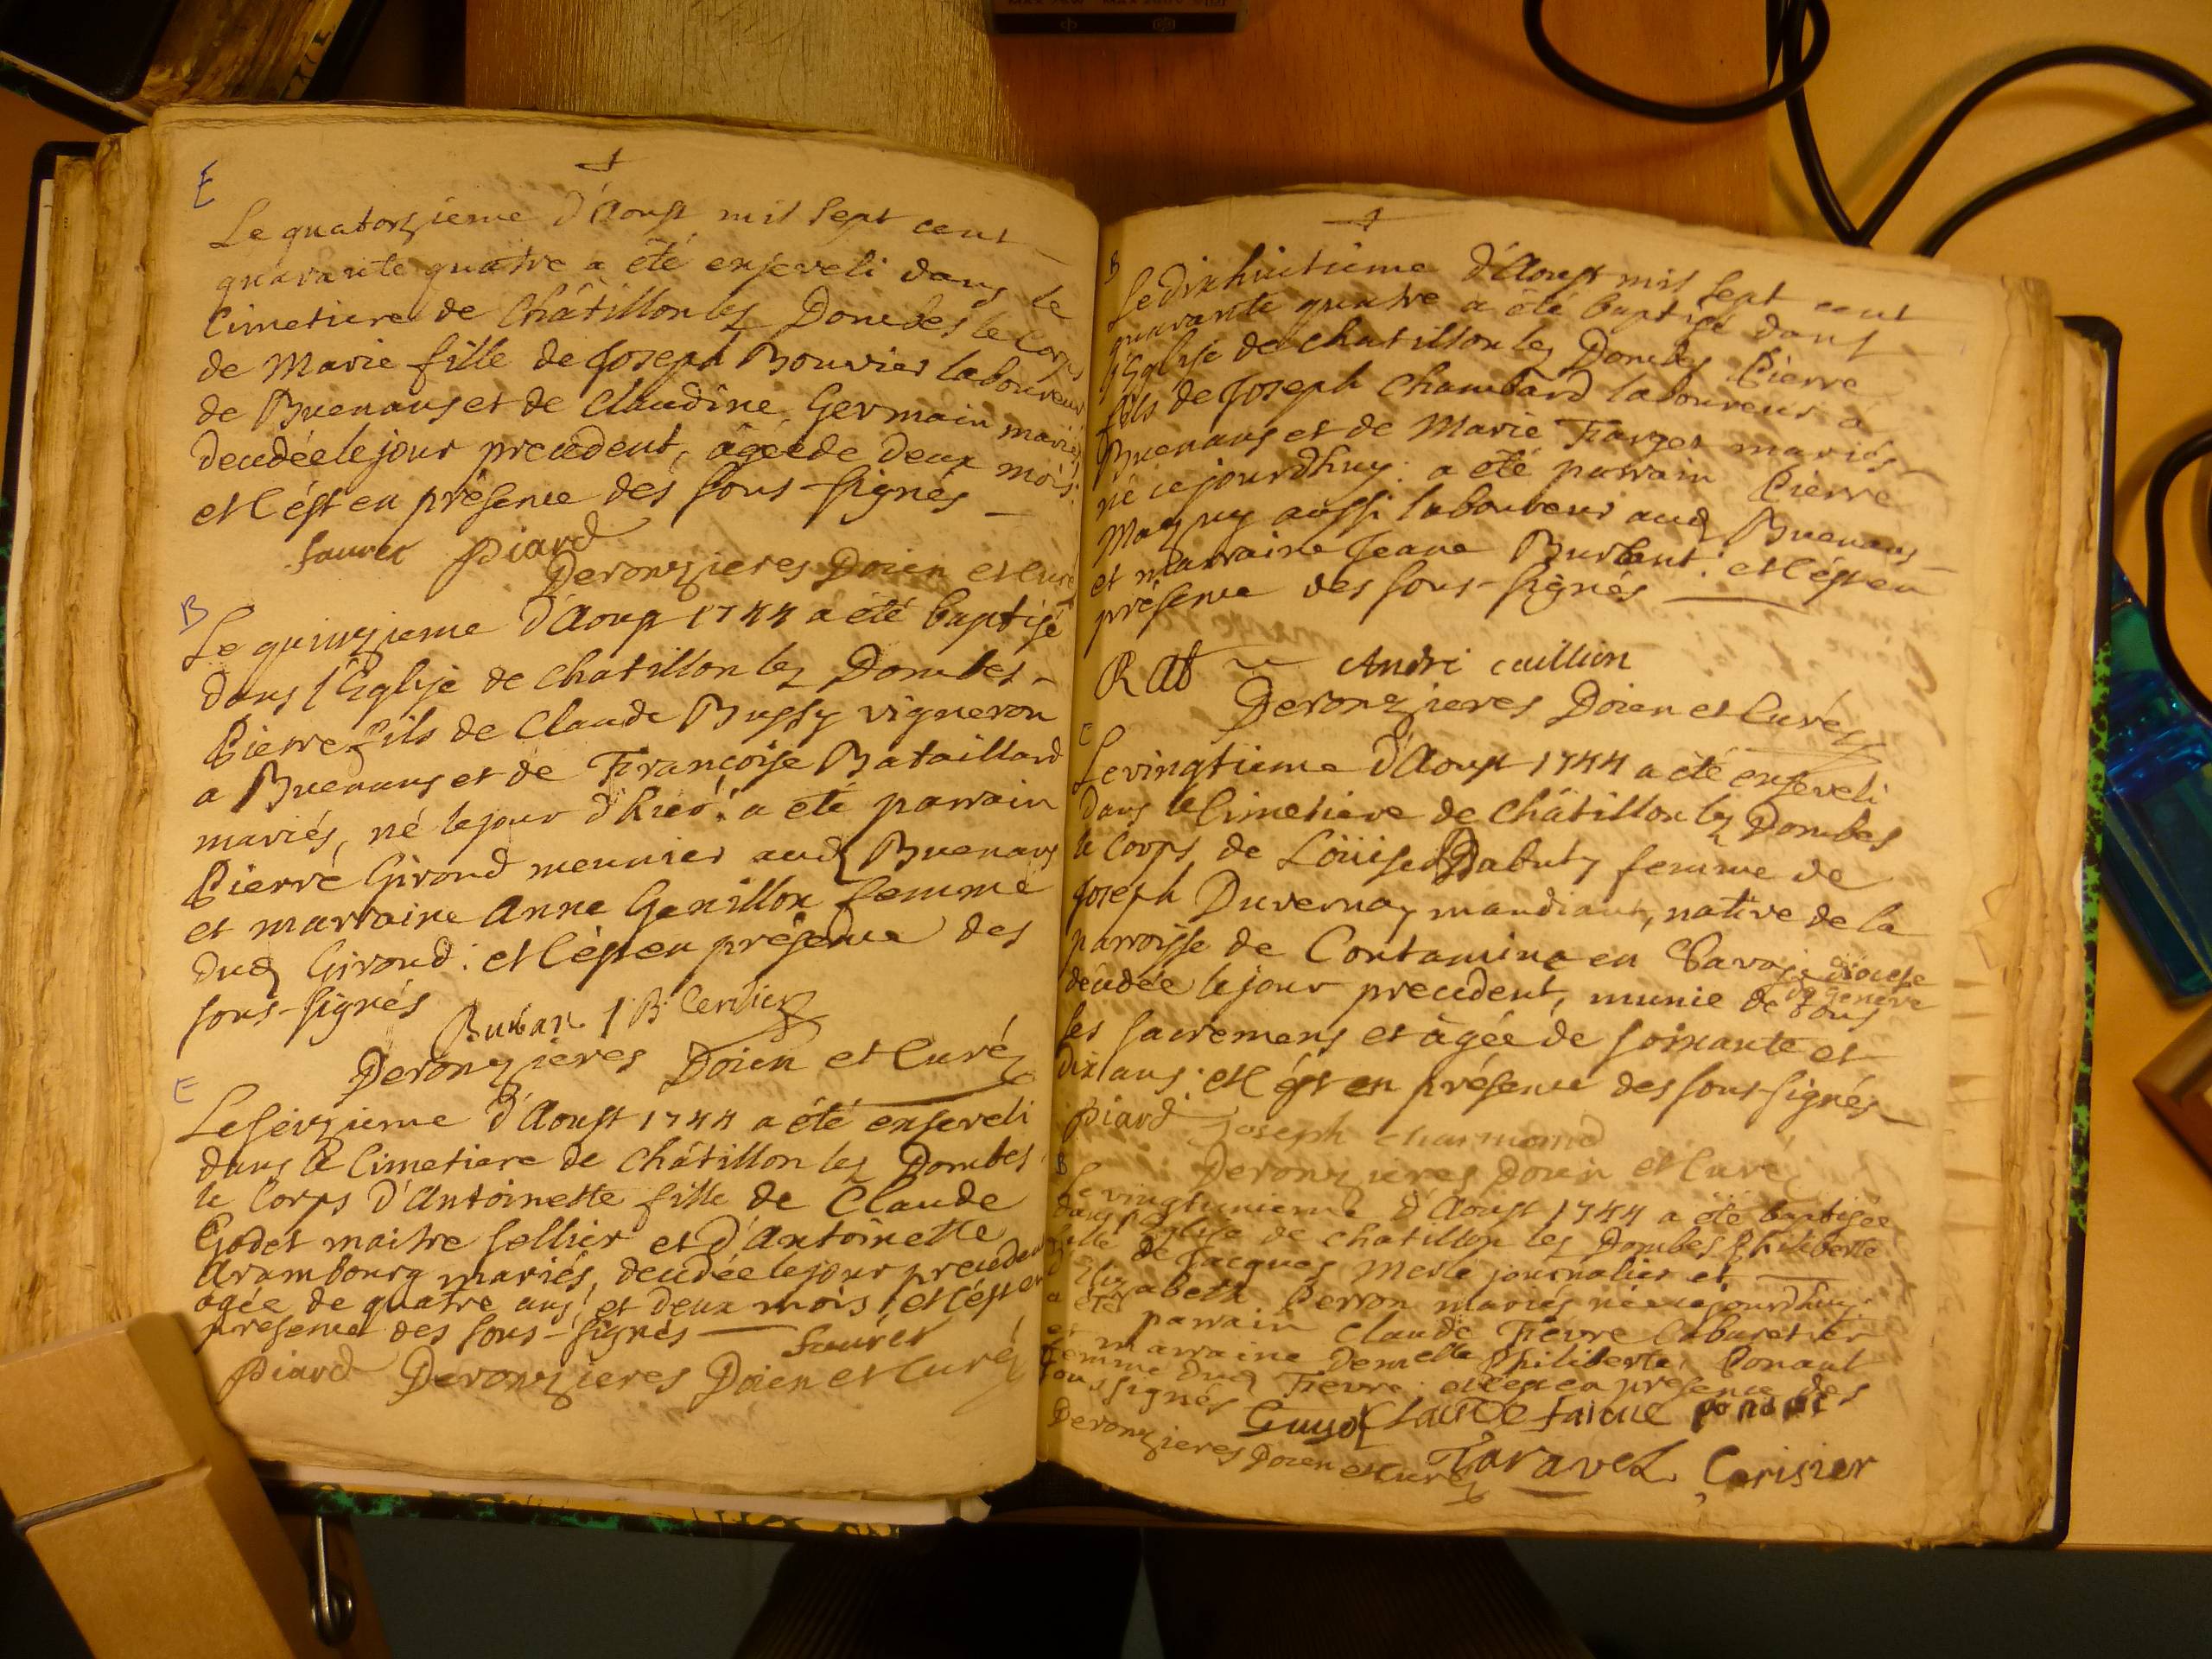 E
Le quatorzieme d'Aoust mil sept cent
quarante quatre a été enseveli dans le
Cimetiere de Châtillon lez Dombes le Corps
de Marie fille de Joseph Bouvier laboureur
de Buenans et de Claudine Germain mariés
decedée le jour precedent, agée de deux mois.
et c'est en présence des sous-signés
Sauvet Piard
Deronzieres Doien et Curé
B
Le quinzieme d'Aoust 1744 a été baptisé
dans l'Eglise de Chatillon lez Dombes
Pierre fils de Claude Bussy vigneron
a Buenans et de Françoise Bataillard
mariés, né le jour d'hier: a été parrain
Pierre Giroud meunier aud Buenans
et marraine Anne Genillon femme
dud Giroud: et c'est en présence des
sous-signés
Deronzières Doien et Curé
E
Le seizieme d'Aoust 1744 a été enseveli
dans le Cimetiere de Châtillon lez Dombes
le Corps d'Antoinette fille de Claude
Godet maitre sellier et d'Antoinette
Arambourg mariés, decedée le jour precedent
agée de quatre ans et deux mois, et c'est en
presence des sous-signés
Sauvet
Piard Deronzieres Doien et Curé
B
Le dixhuitieme d'Aoust mil sept cent
quarante quatre a été baptisé dans
l'Eglise de Chatillon lez Dombes Pierre
fils de Joseph Chambard laboureur a
Buenans et de Marie Farget mariés
né cejourdhuy: a été parrain Pierre
Mazuy aussi laboureur aud Buenans
et marraine Jeane Burtent: et c'est en
présence des sous-signés
Rat André Caillion
Deronzieres Doien et Curé
E
Le vingtieme d'Aoust 1744 a été enseveli
dans le Cimetiere de Châtillon lez Dombes
le Corps de Loüise Dabuty femme de
Joseph Duvernay mandiant, native de la
parroisse de Contamine en Savoje diocese
de Geneve
decedée le jour precedent, munie de tous
les sacremens et agée de soixante et
dix ans: et c'est en présence des sous-signés
Piard Joseph Charmond
Deronzieres Doien et Curé
B
Le vingtunieme d'Aoust 1744 a été baptisée
dans l'Eglise de Chatillon lez Dombes Philiberte
fille de Jacques Merle journalier et
Elizabeth Perron mariés née cejourdhuy:
a été parrain Claude Fievre Cabaretier
et marraine Demelle Philiberte Ponaul
femme dud Fievre: et c'est en présence des
sous signés
Guyot Claude faivre ponaul
Deronzieres Doien et Curé Taravel Cerisier